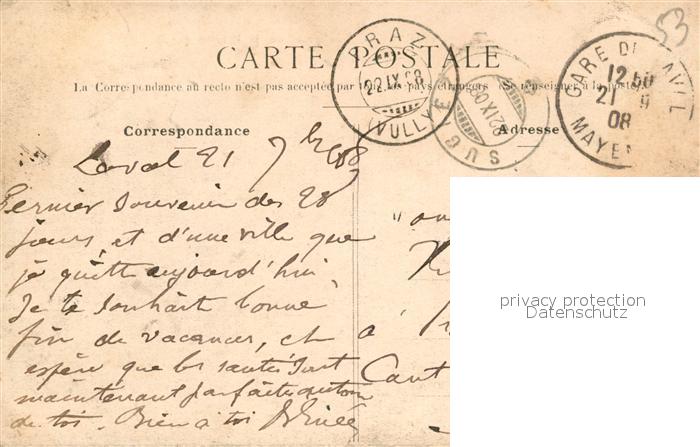 53
CARTE POSTALE
La Correspondance au recto n'est pas acceptée par tous les pays étrangers (Se renseigner à la poste)
PRAZ
22.IX.08
(VULLY)
SUG
22.IX.08
GARE DE LAVAL
12
21
08
MAYEN
Correspondance
Adresse
Laval 21 7bre 08
Dernier souvenir des 28
jours, et d'une ville que
je quitte aujourd'hui
Je te souhaite bonne
fin de vacances, et
espère que les santés sont
maintenant parfaites autour
de toi. Bien à toi
à
Cant
privacy protection
Datenschutz